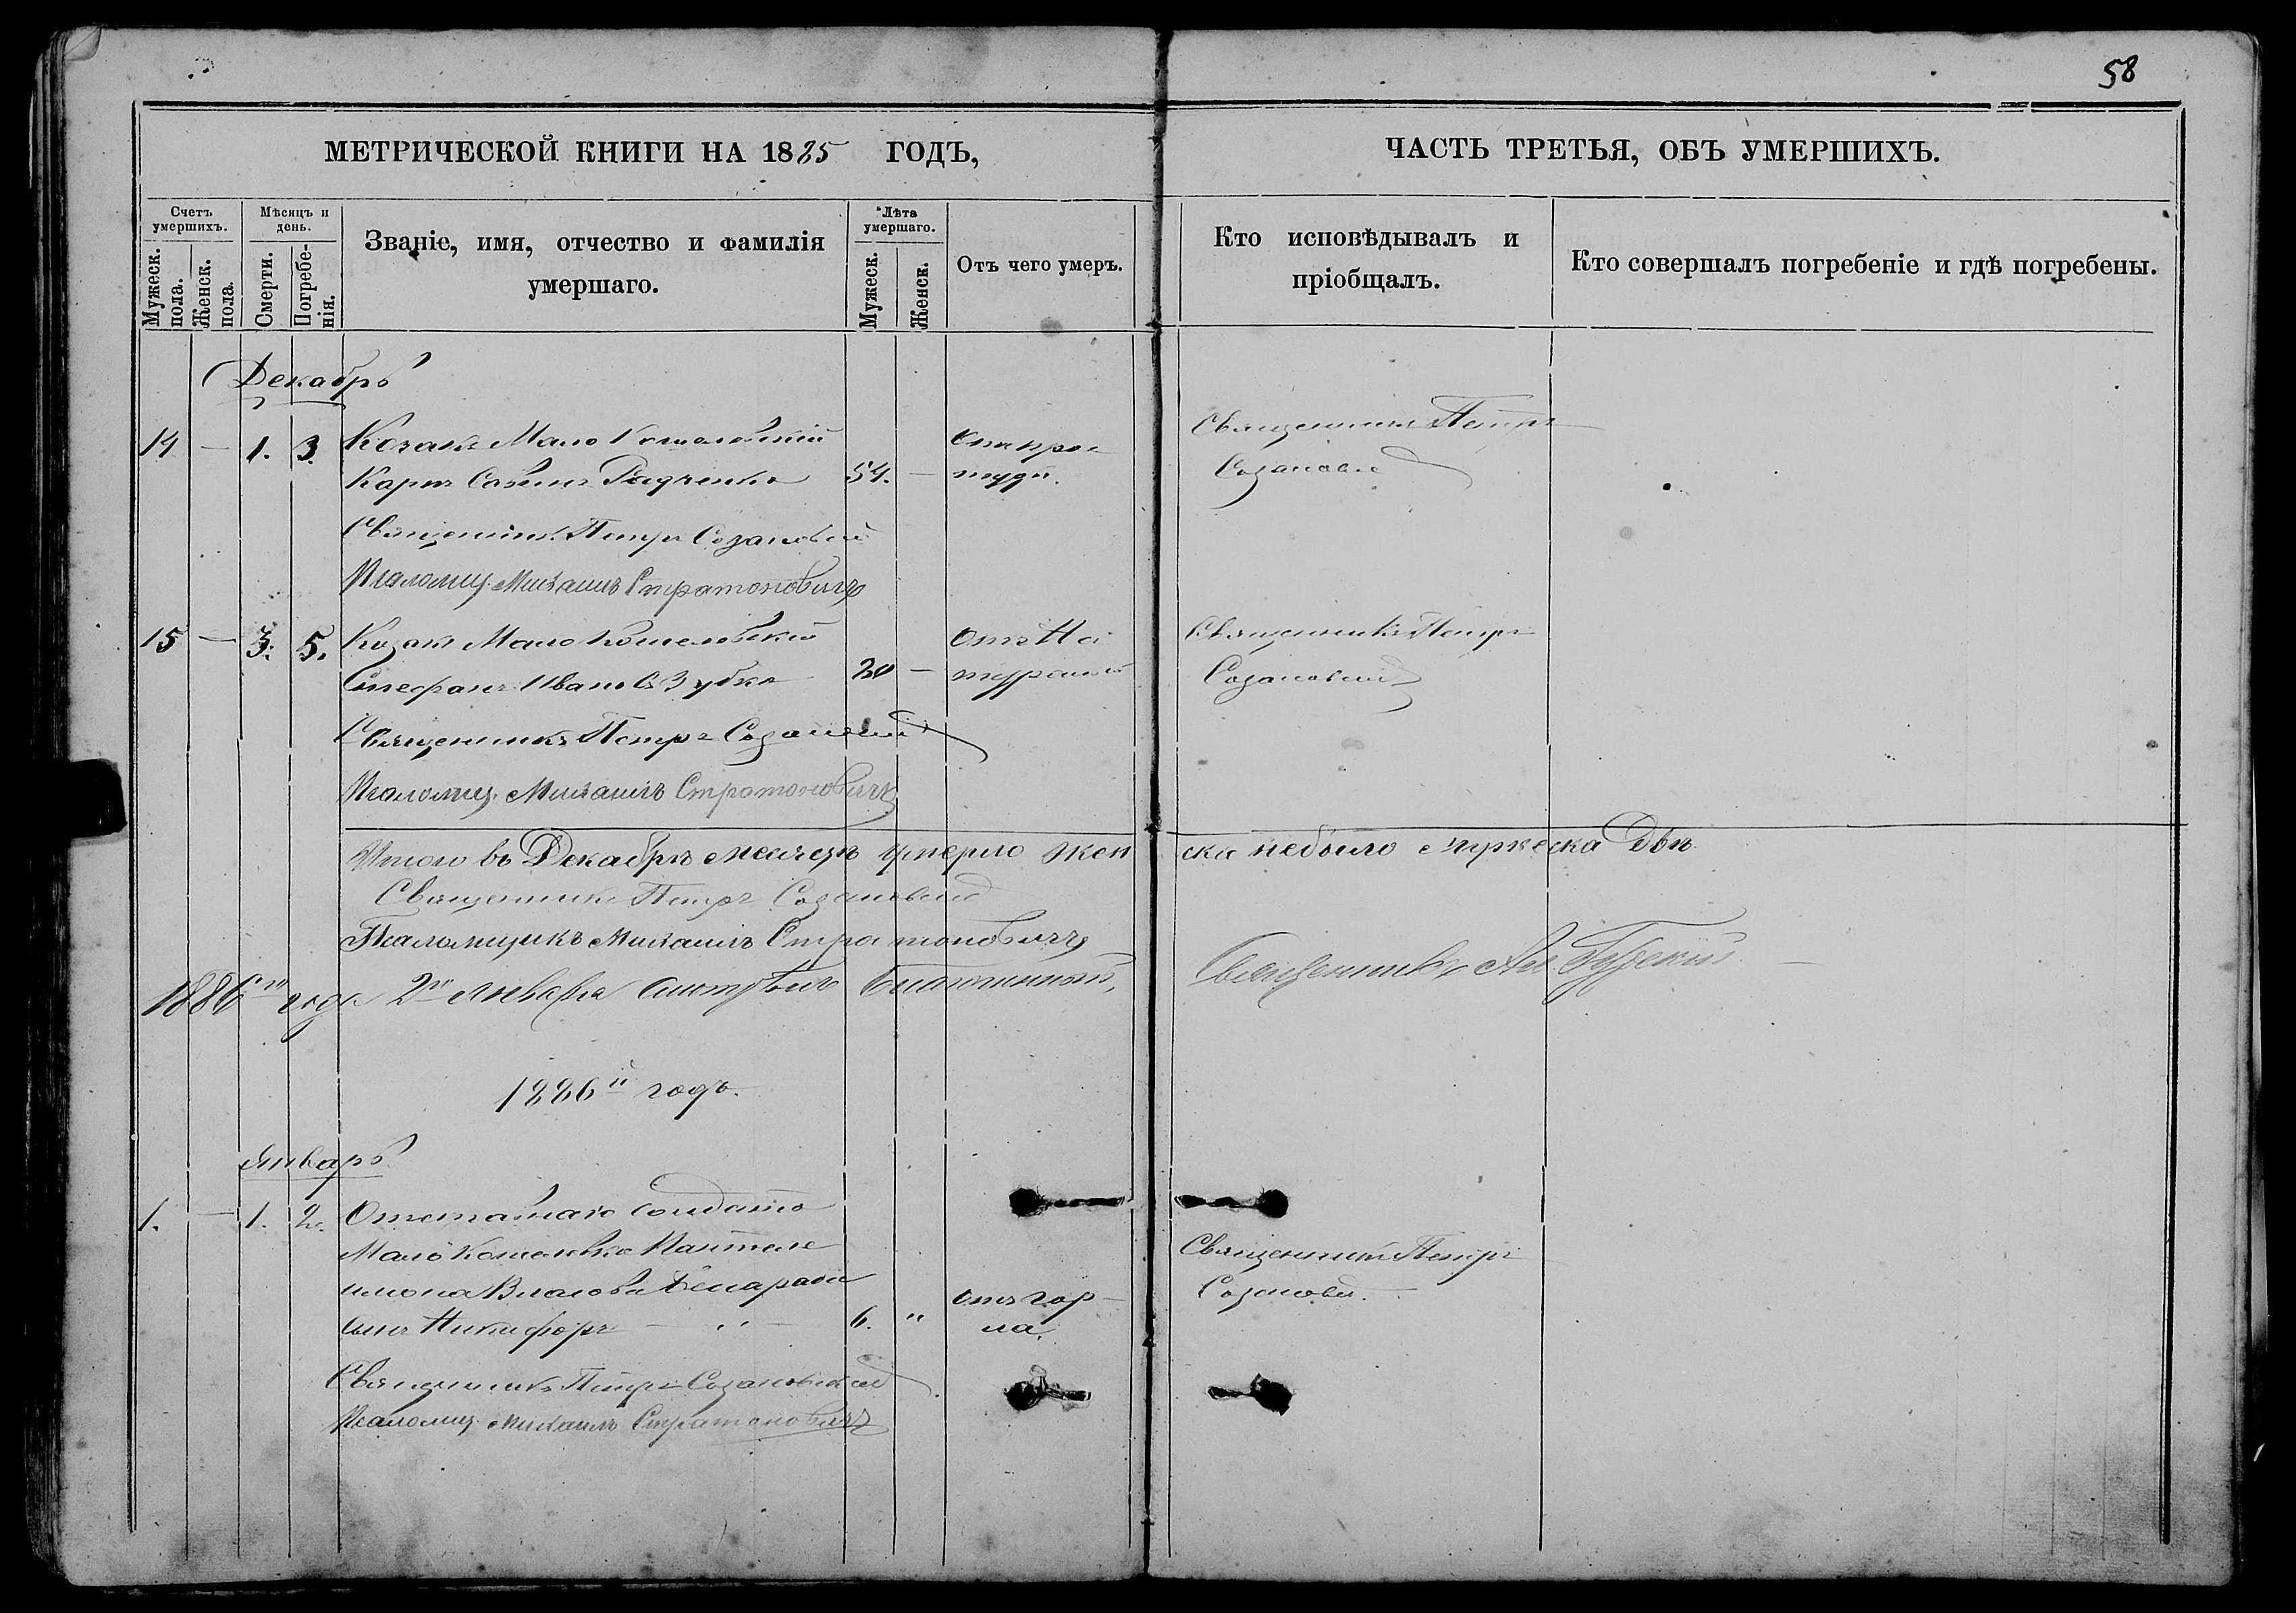 58
МЕТРИЧЕСКОЙ КНИГИ НА 1885 ГОДЪ,
ЧАСТЬ ТРЕТЬЯ, ОБЪ УМЕРШИХЪ.
Счетъ умершихъ.
Мужеск. пола.
Женск. пола.
Мѣсяцъ и день.
Смерти.
Погребе-
нія.
Званіе, имя, отчество и фамилія
умершаго.
Лѣта умершаго.
Мужеск.
Женск.
Отъ чего умеръ.
Кто исповѣдывалъ и
пріобщалъ.
Кто совершалъ погребеніе и гдѣ погребены.
Декабрь
14 — 1. 3. Козакъ Мало Кошелевскій Священникъ Петръ
Карпъ Савинъ Радченко 54. —
Священникъ Петръ Созановскій
Псаломщ. Михаилъ Стратоновичъ
15 — 3. 5. Козакъ Мало Кошелевскій Священникъ Петръ
Стефанъ Ивановъ Зубко 20 — Созановскій
Священникъ Петръ Созановскій
Псаломщ. Михаилъ Стратоновичъ
Итого въ Декабрѣ месяцѣ умерло женска небыло мужеска двѣ
Священникъ Петръ Созановскій
Псаломщикъ Михаилъ Стратоновичъ
1886го года 2го Января Благочинный, Священникъ
1886й годъ.
Январь
1. — 1. 2. Отставнаго Солдата
Мало Кошелевка Пантеле Священникъ Петръ
имона Власова
сынъ Никифоръ — " — 6. " отъ гор-
ла.
Священникъ Петръ Созановскій
Псаломщ. Михаилъ Стратоновичъ